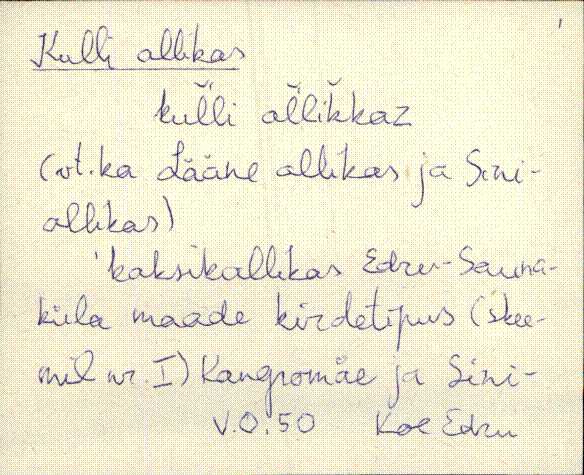 Kulli allikas
kul̆li al̆lik̆kaz
(vt. ka Lääne allikas ja Sini-
allikas)
'kaksikallikas Edru-Sauna-
küla maade kirdetipus (skee-
mil nr. I) Kangromäe ja Sini-
V.O. 50 Koe Edru